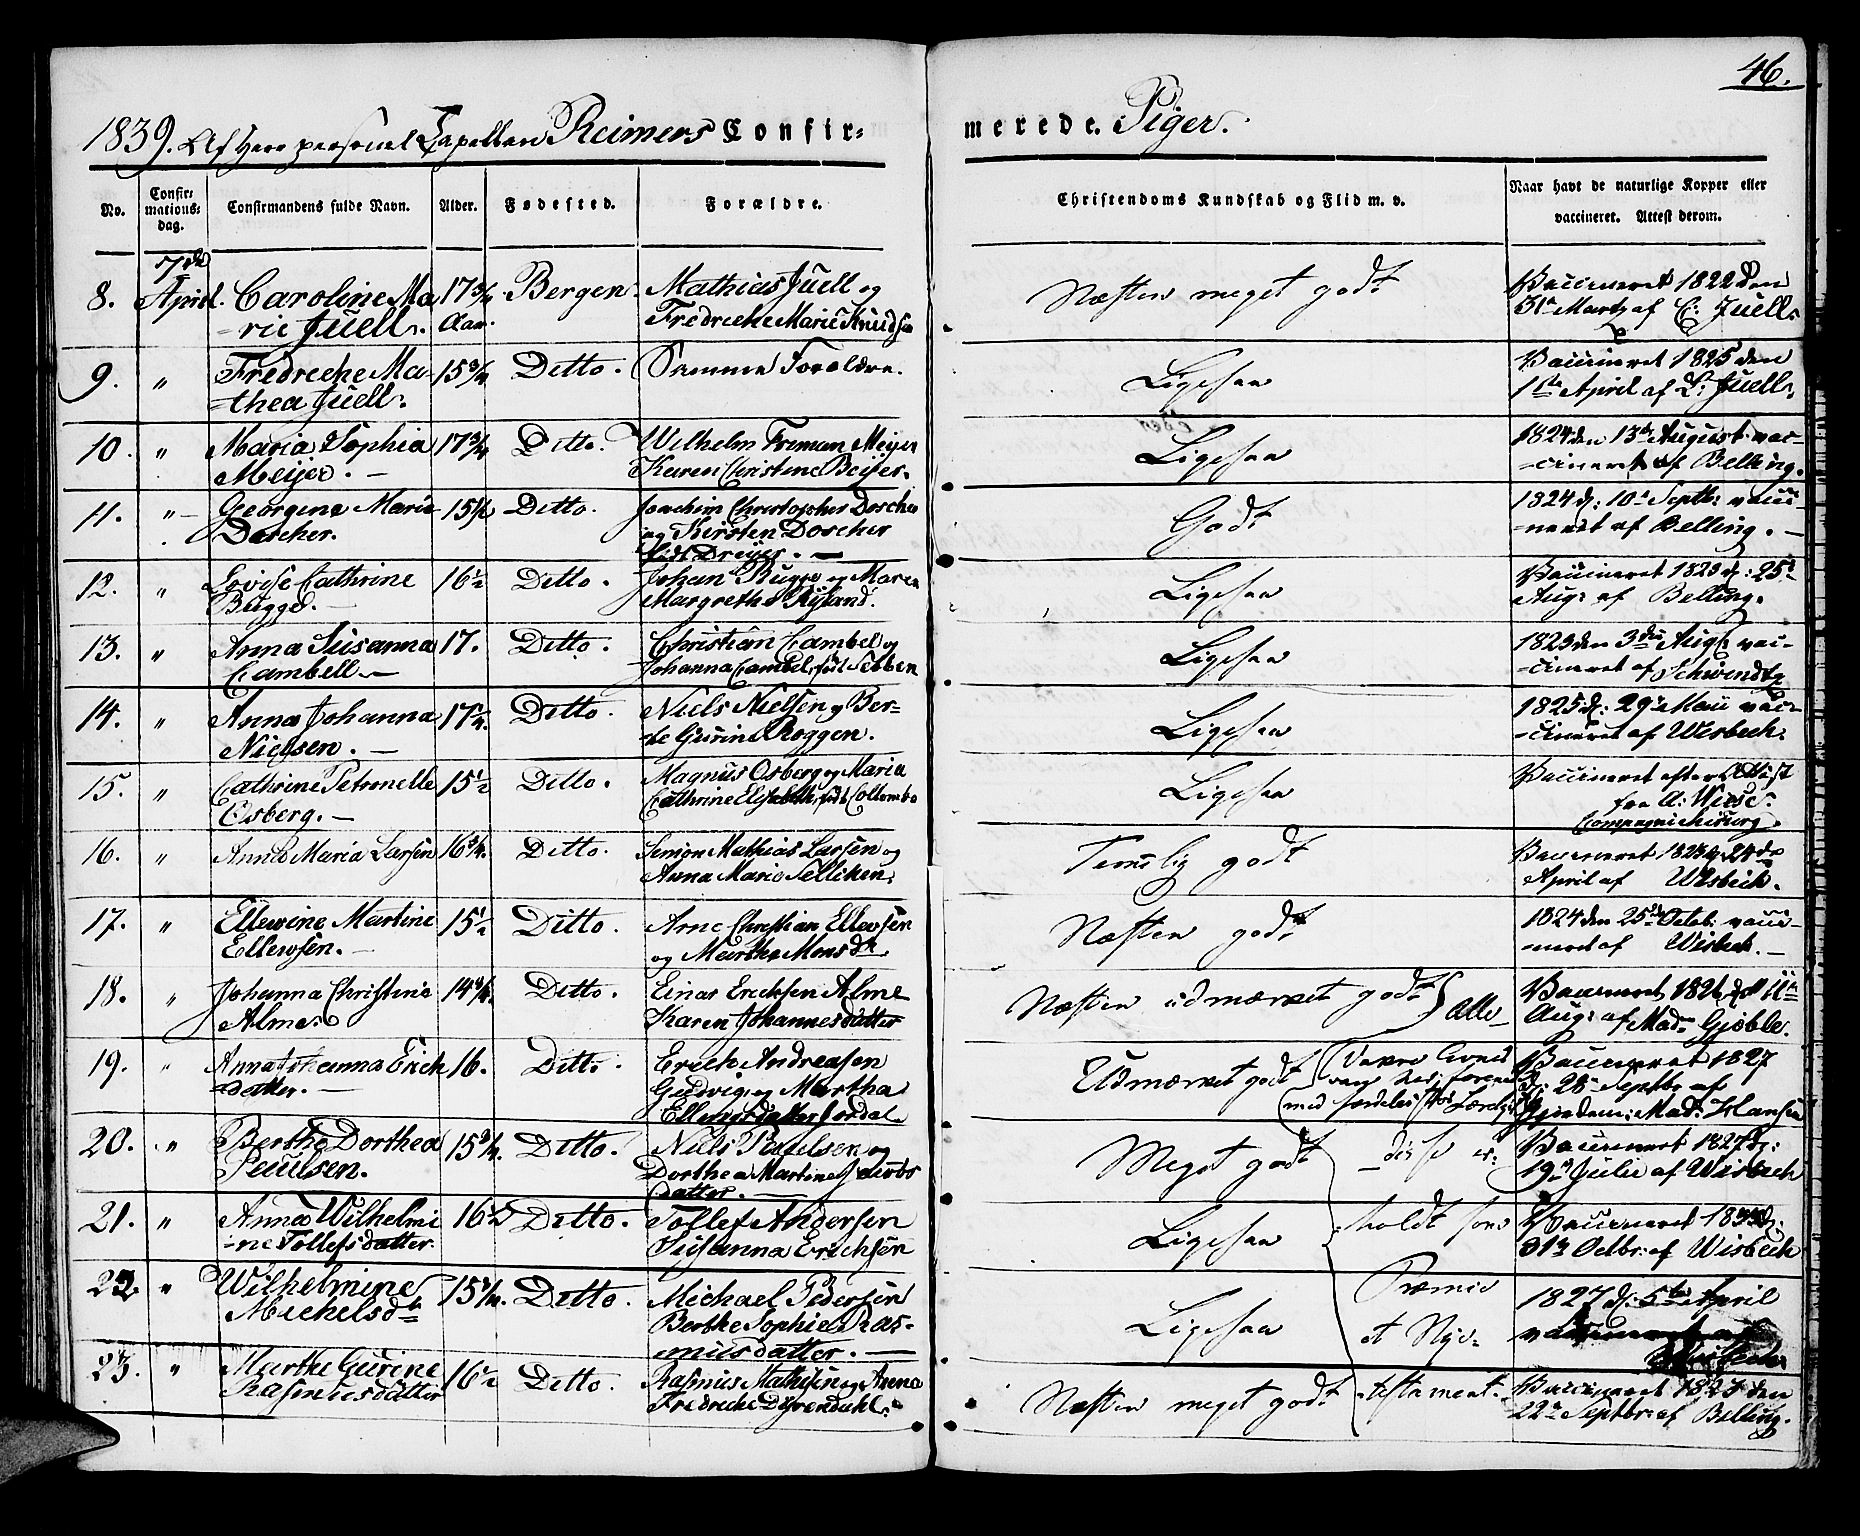 46.
1839. Af Herr personel Capellan Reimers Confir=
merede. Piger.
No.
Confir=
mations=
dag.
Confirmandens fulde Navn.
Alder.
Fødested.
Forældre.
Christendoms Kundskab og Flid m. v.
Naar havt de naturlige Kopper eller
vaccineret. Attest derom.
8. 7de April. Caroline Ma
=rie Juell. 17 3/4 Aar. Bergen. Mathias Juell og
Fredricke Marie Knudsen
Næsten meget godt
Vaccineret 1822 den
31te Marts af C: Juell.
9. " Fredricke Ma-
=thea Juell. 15 3/4 Ditto. Samme Forældre.
Ligesaa
Vaccineret 1825 den
1ste April af C: Juell.
10. " Maria Sophia
Meijer. — 17 3/4 Ditto. Wilhelm Meijer
Karen Christine Beijer.
Ligesaa
1824 den 13de August vac-
=cineret af Belling.
11. " Georgine Marie
Doscher. 15 1/2 Ditto. Joachim Christopher Doscher
og Kirsten Doscher
født Dreijer. —
Godt
1824 d: 10de Septbr: vacci
=neret af Belling. —
12. " Lovise Cathrine
Bugge. — 16 1/2 Ditto. Johan Bugge og Maren
Margrethe
Ligesaa
Vaccineret 1823 d: 25de
Aug: af Belling.
13. " Anna Susanna
Cambell. — 17. Ditto. Christian Cambel og
Johanna Cambel, født Tebben
Ligesaa
1823 den 3die Aug: vac-
=cineret af Schwindt
14. " Anna Johanna
Nielsen. — 17 1/4. Ditto. Niels Nielsen og Ber-
=te Gurine Roggen.
Ligesaa
1825 d: 29de Maii vac-
=cineret af Wisbech.
15. " Cathrine Petronelle
Osberg. — 15 1/2 Ditto. Magnus Osberg og Maria
Cathrine Elisabeth, født Collombo
Ligesaa
Vaccineret efter Attest
fra A: Wiese.
Compagniechirurg.
16. " Anna Maria Larsen 16 3/4. Ditto. Simon Mathias Larsen og
Anna Marie Tellisen.
Temelig godt
Vaccineret 1823 d: 24de
April af Wisbech.
17. " Ellewine Martine
Ellewsen. — 15 1/2 Ditto. Arne Christian Ellewsen
og Martha Monsdtr
Næsten godt
1824 den 25de Octob: vacci-
=neret af Wisbech. —
18. " Johanna Christine
Alme. 14 3/4. Ditto. Einar Ericksen Alme
Karen Johannesdatter
Næsten udmærket godt
Alle
Vaccineret 1826 d 11te
Aug: af Mad: Gjøble.
19. " Anna Johanna Erich
=datter. 16. Ditto. Erich Andreasen
Gudvig, og Martha
Ellingsdatter Jordal.
Udmærket godt
med særdeles
Vaccineret 1827
d: 28de Septbr af
Mad: Hansen
20. " Berthe Dorthea
Paulsen. 15 3/4. Ditto. Niels Paulsen og
Dorthea Martine Jacobs
datter. —
Meget godt
disse er:
Vaccineret 1827 d:
19de Julii af Wisbech
21. " Anna Wilhelmi
=ne Tollefsdatter. 16 1/2 Ditto. Tollef Andersen
Susanna Erichsen
Ligesaa
holdt som
Vaccineret 1833 d:
31te Octbr: af Wisbech
22. " Wilhelmine
Michelsdtr 15 3/4. Ditto. Michael Pedersen
Berthe Sophie Ras-
musdatter. —
Ligesaa
Præmie
et Nye-
1827 d: 5te April
vaccineret af
Wisbech
23. " Marthe Gurine
Rasmusdatter 16 1/2 Ditto. Rasmus Mathisen og Anna
Fredricke Dyrendahl.
Næsten meget godt
testament.
Vaccineret 1823 den
22de Septbr: af Belling.